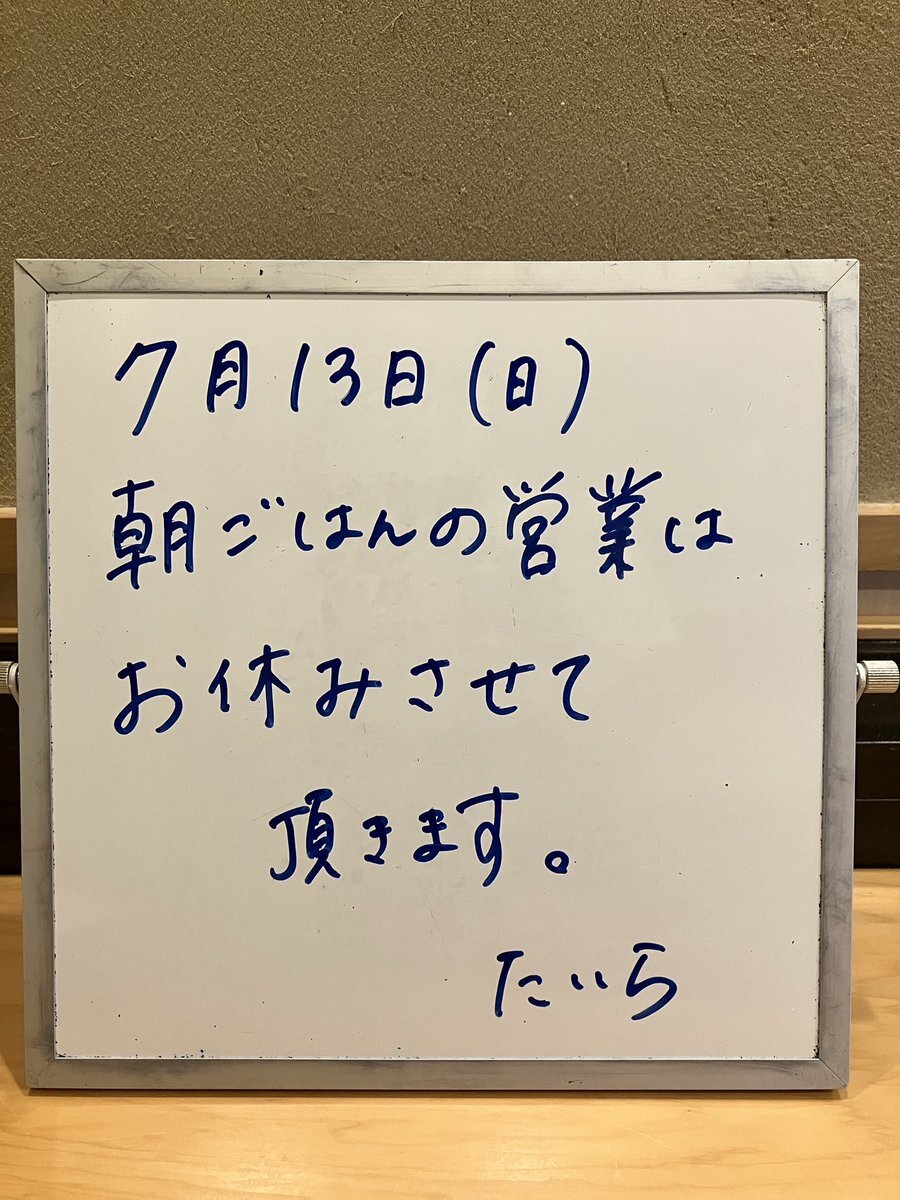 7月13日(日)
朝ごはんの営業は
お休みさせて
頂きます。
たいら